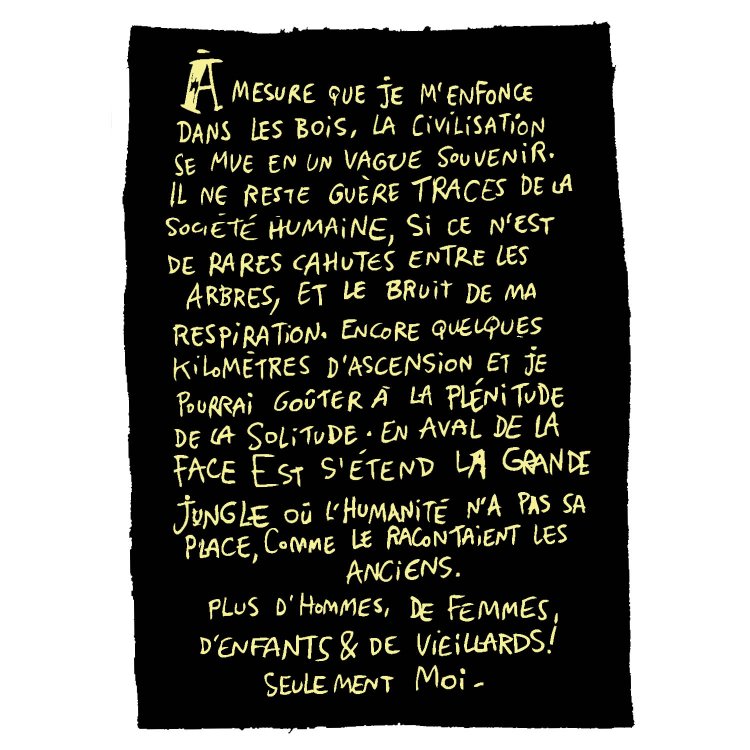 À MESURE QUE JE M'ENFONCE
DANS LES BOIS, LA CIVILISATION
SE MUE EN UN VAGUE SOUVENIR.
IL NE RESTE GUÈRE TRACES DE LA
SOCIÉTÉ HUMAINE, SI CE N'EST
DE RARES CAHUTES ENTRE LES
ARBRES, ET LE BRUIT DE MA
RESPIRATION. ENCORE QUELQUES
KILOMÈTRES D'ASCENSION ET JE
POURRAI GOÛTER À LA PLÉNITUDE
DE LA SOLITUDE. EN AVAL DE LA
FACE EST S'ÉTEND LA GRANDE
JUNGLE OÙ L'HUMANITÉ N'A PAS SA
PLACE, COMME LE RACONTAIENT LES
ANCIENS.
PLUS D'HOMMES, DE FEMMES,
D'ENFANTS & DE VIEILLARDS!
SEULEMENT MOI-